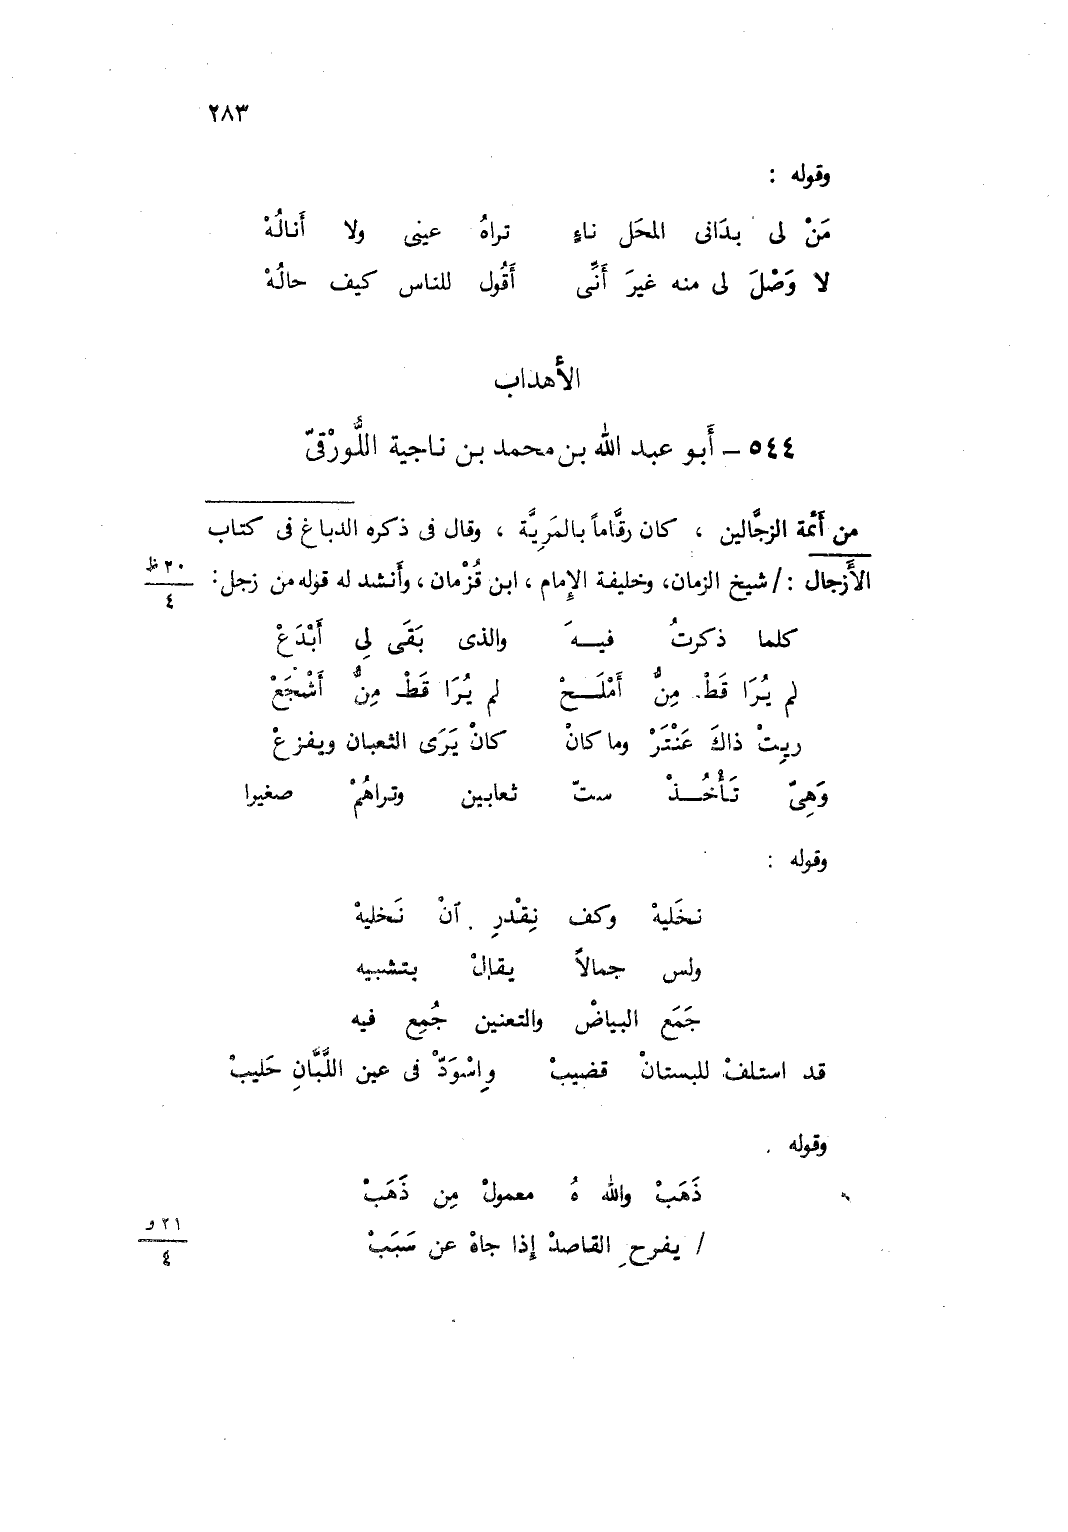 ٢٨٣
وقوله :
مَنْ لى بدَانى المحَل ناءٍ تراهُ عينى ولا أَنالُهْ
لا وَصْلَ لى منه غيرَ أَنِّى أَقُول للناس كيف حالُهْ
الأهداب
٥٤٤ – أَبو عبد الله بن محمد بن ناجية اللُّورْقىّ
من أَئمة الزجَّالين ، كان رقَّاماً بالمَرِيَّة ، وقال فى ذكره الدباغ فى كتاب
الأَزجال : / شيخ الزمان، وخليفة الإِمام ، ابن قُزْمان ، وأَنشد له قوله من زجل :
٢٠ ظ
٤
كلما ذكرتُ فيهَ والذى بَقَى لِى أَبْدَعْ
لم يُرَا قَطْ مِنُّ أَمْلَحْ لم يُرَا قَطْ مِنُّ أَشْجَعْ
ريِتْ ذاكَ عَنْتَرْ وما كانْ كانْ يَرَى الثعبان ويفزعْ
وَهِىّ تَأْخُذْ ستّ ثعابين وتراهُمْ صغيرا
وقوله :
نخَليهْ وكف نِقْدرِ آنْ نَخليهْ
ولس جمالاً يقالْ بتشبيه
جَمَع البياضْ والتعنين جُمِع فيه
قد استلفْ للبستانْ قضيبْ وِاسْوَدّْ فى عين اللَّبَّانِ حَليبْ
وقوله .
ذَهَبْ والله هُ معمولْ مِن ذَهَبْ
/ يفرحِ القاصدْ إِذا جاهْ عن سَبَبْ
٢١ و
٤